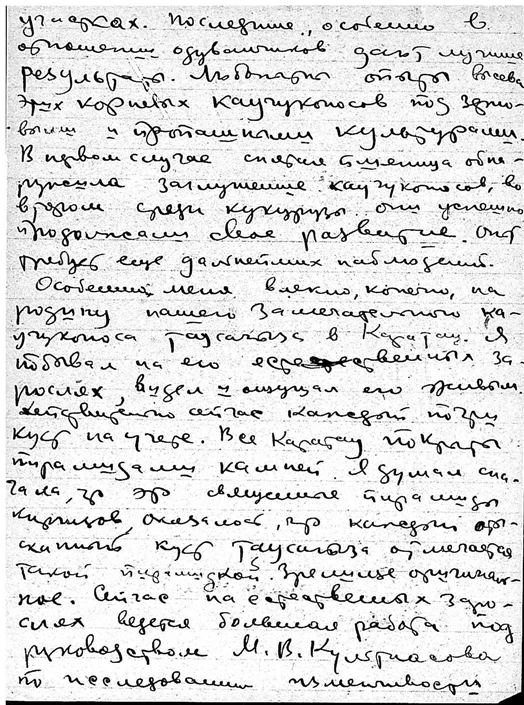 участках. Последние, особенно в
отношении одуванчиков дают лучшие
результаты. Любопытны опыты высева
этих корневых каучуконосов под зерно-
выми и пропашными культурами.
В первом случае снятая пшеница обна-
ружила заглушение каучуконосов, во
втором среди кукурузы они успешно
продолжали свое развитие. Опыт
требует еще дальнейших наблюдений.
Особенно меня влекло, конечно, на
родину нашего замечательного ка-
учуконоса таусагыза в Каратау. Я
побывал на его естественных за-
рослях, видел и ощущал его живым.
Действительно сейчас каждый почти
куст на учете. Все Каратау покрыты
пирамидами камней. Я думал сна-
чала, что это священные пирамиды
киргизов, оказалось, что каждый оты-
сканный куст таусагыза отмечается
такой пирамидкой. Зрелище оригиналь-
ное. Сейчас на естественных заро-
слях ведется большая работа под
руководством М. В. Культиасова
по исследованию изменчивости